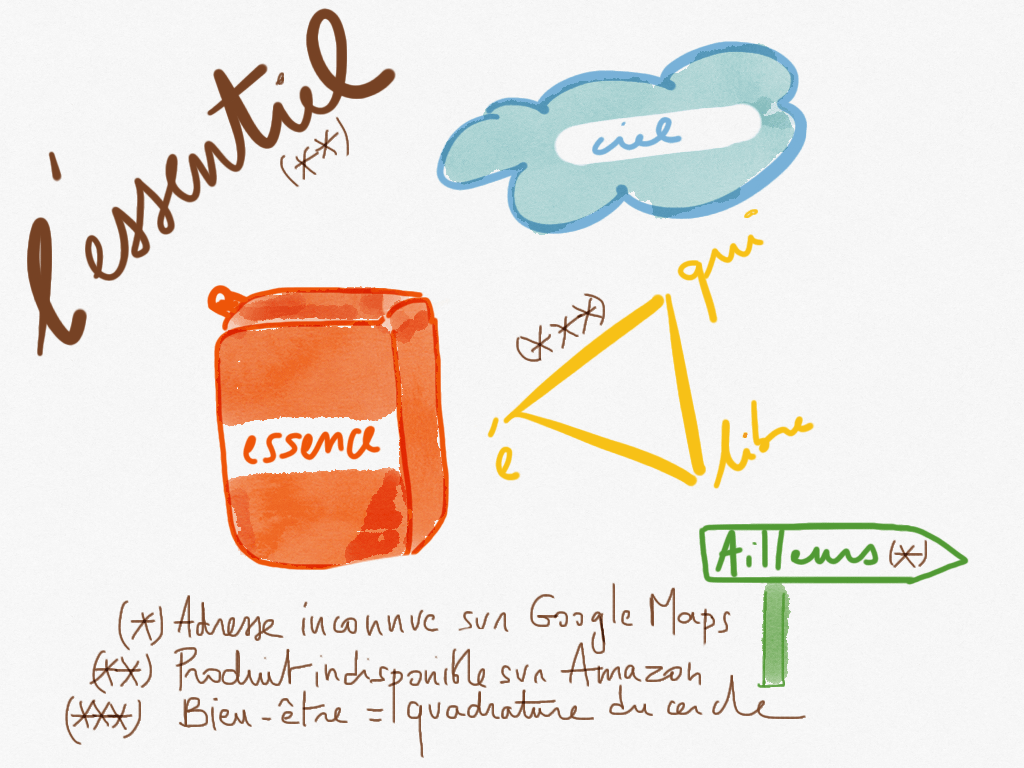 l'essentiel
(**)
ciel
qui
(***)
é
libre
essence
Ailleurs (*)
(*) Adresse inconnue sur Google Maps
(**) Produit indisponible sur Amazon
(***) Bien-être = quadrature du cercle